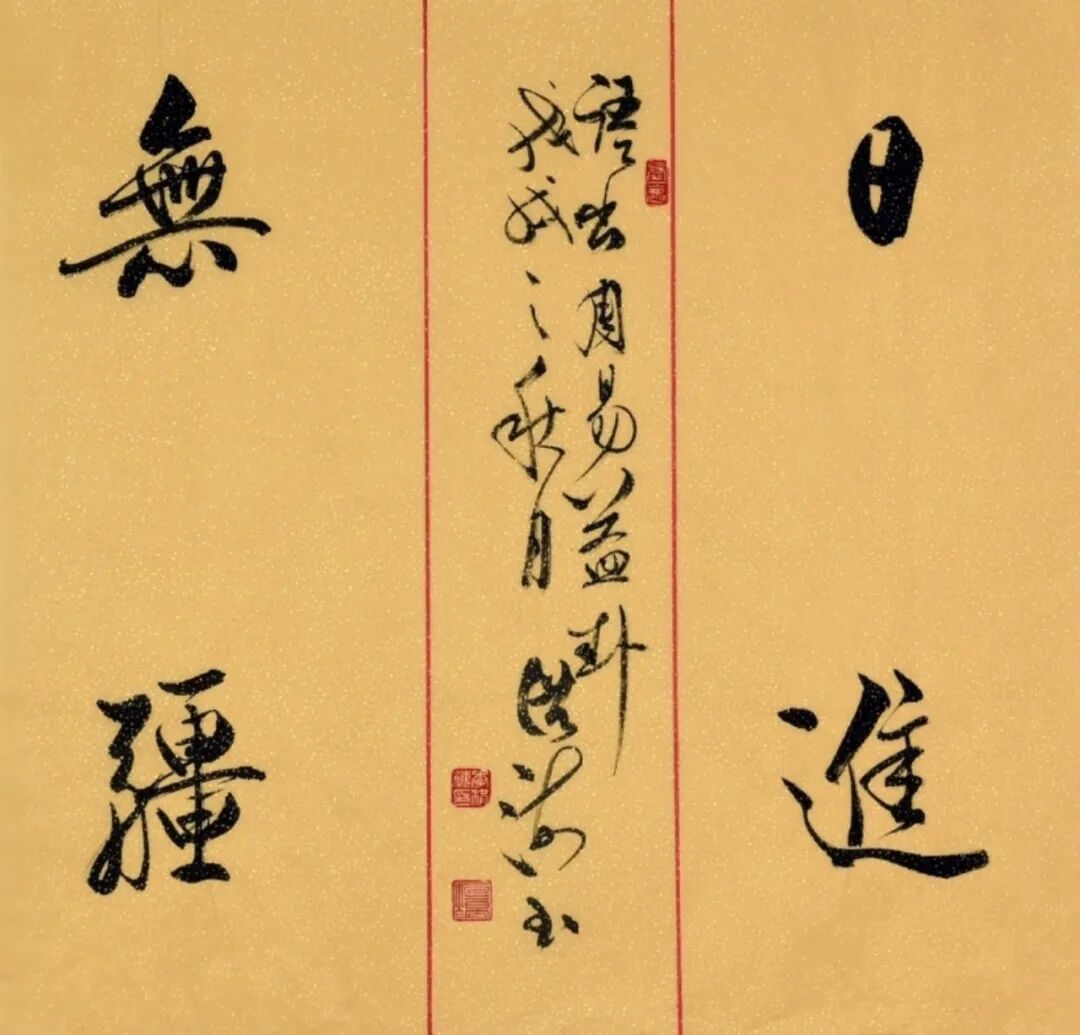 日進
語出周易益卦
戊戌之秋月
書
無疆